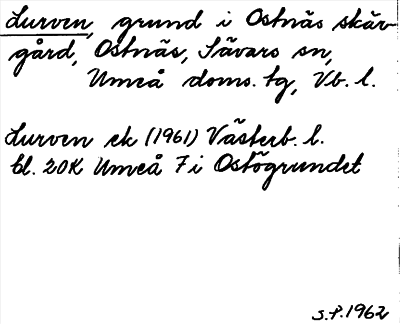 Lurven, grund i Ostnäs skär-
gård, Ostnäs, Sävars sn,
Umeå doms. tg, Vb. l.
Lurven ek (1961) Västerb. l.
bl. 20K Umeå 7 i Ostögrundet
S.P. 1962